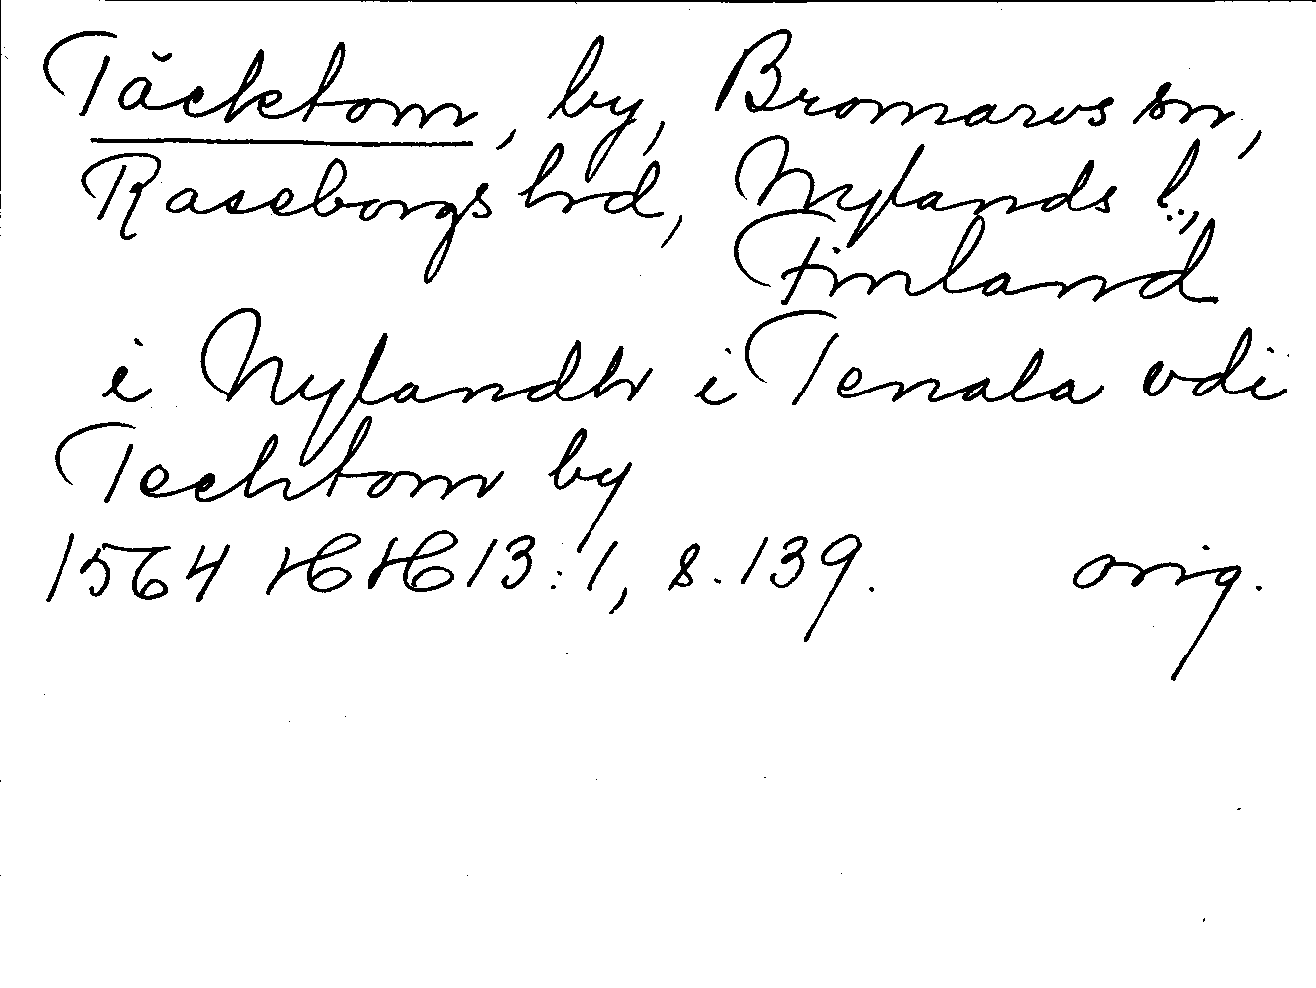 Täcktom, by, Bromarvs sn,
Raseborgs hrd, Nylands l.,
Finland
i Nylandh i Tenala vdi
Techtom by
1564 HH 13:1, s. 139. orig.